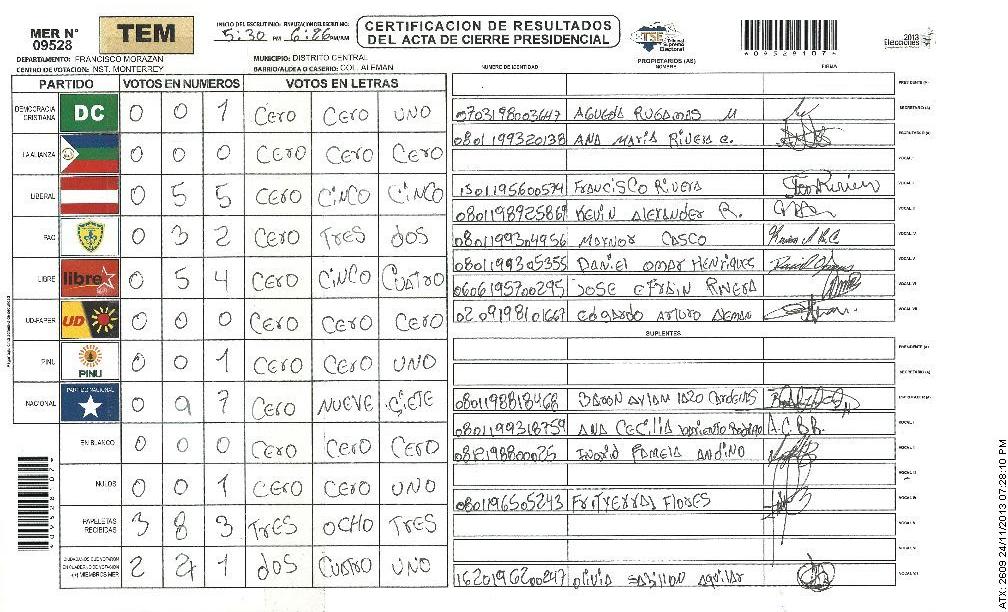 MER N° 09528
TEM
INICIO DEL ESCRUTINIO: 5:30 PM
6:26 PM/AM
CERTIFICACION DE RESULTADOS
DEL ACTA DE CIERRE PRESIDENCIAL
TSE Tribunal Supremo Electoral
2013 Elecciones
DEPARTAMENTO: FRANCISCO MORAZAN
MUNICIPIO: DISTRITO CENTRAL
CENTRO DE VOTACION: NST. MONTERREY
BARRIO/ALDEA O CASERIO: COL. ALEMAN
PARTIDO VOTOS EN NUMEROS VOTOS EN LETRAS
DEMOCRACIA CRISTIANA DC 0 0 1 CERO CERO UNO
LA ALIANZA 0 0 0 CERO CERO CERO
LIBERAL 0 5 5 CERO CINCO CINCO
PAC 0 3 2 CERO TRES DOS
LIBRE libre 0 5 4 CERO CINCO CUATRO
UD-FAPER UD 0 0 0 CERO CERO CERO
PINU PINU 0 0 1 CERO CERO UNO
NACIONAL PARTIDO NACIONAL 0 9 7 CERO NUEVE SIETE
EN BLANCO 0 0 0 CERO CERO CERO
NULOS 0 0 1 CERO CERO UNO
PAPELETAS RECIBIDAS 3 8 3 TRES OCHO TRES
CIUDADANOS QUE VOTARON EN CUADERNO DE VOTACION (+) MIEMBROS MER 2 4 1 DOS CUATRO UNO
PROPIETARIOS (AS)
NUMERO DE IDENTIDAD NOMBRE FIRMA
PRESIDENTE (A)
0703198003647 AGUEDA RUGAMAS M SECRETARIO (A)
0801199320138 ANA MARIA RIVERA C. ESCRUTADOR (A)
VOCAL I
1501195600574 FRANCISCO RIVERA VOCAL II
KEVIN ALEXANDER R.
0801199304956 MAYNOR CASCO VOCAL IV
0801199305355 DANIEL OMAR HENRIQUES VOCAL V
0606195700295 JOSE EFRAIN RIVERA VOCAL VI
0209198101667 EDGARDO ARTURO ALEMAN VOCAL VII
SUPLENTES
PRESIDENTE (A)
SECRETARIO (A)
0801198818468
0801199318759 ANA CECILIA A.C.B.R. VOCAL I
INGRID PAMELA ANDINO
VOCAL III
0801196505243 FLORES VOCAL IV
VOCAL V
VOCAL VI
1620196200247 OLIVIA AGUILAR VOCAL VII
*09528107*
ATX-2609 24/11/2013 07:28:10 PM